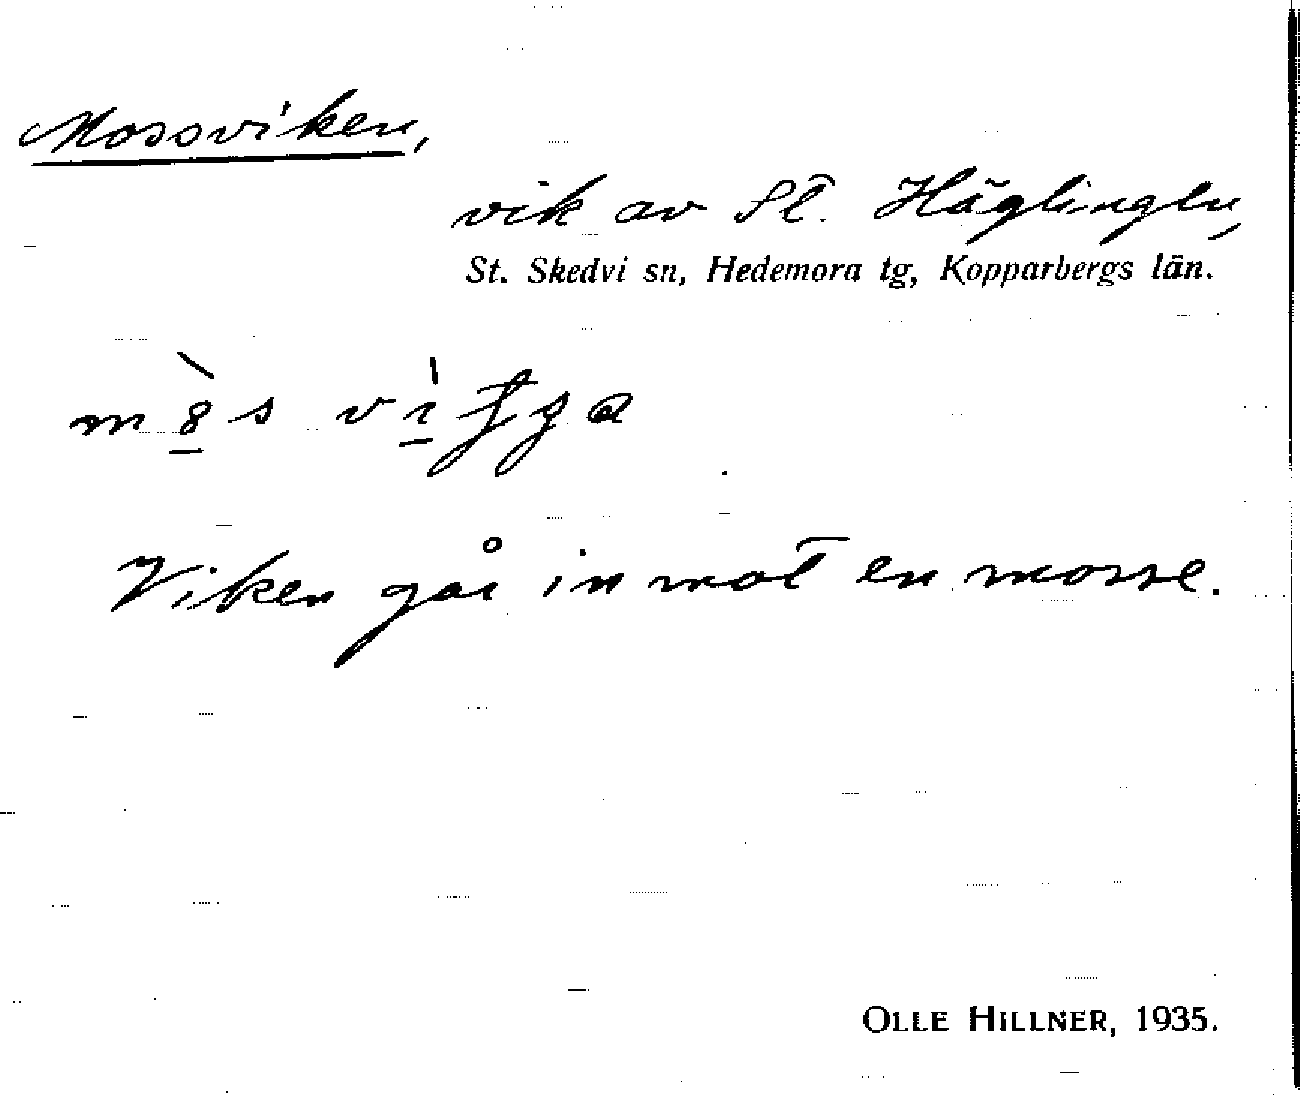 Mossviken,
vik av St. Häglingen,
St. Skedvi sn, Hedemora tg, Kopparbergs län.
Viken går in mot en mosse.
OLLE HILLNER, 1935.